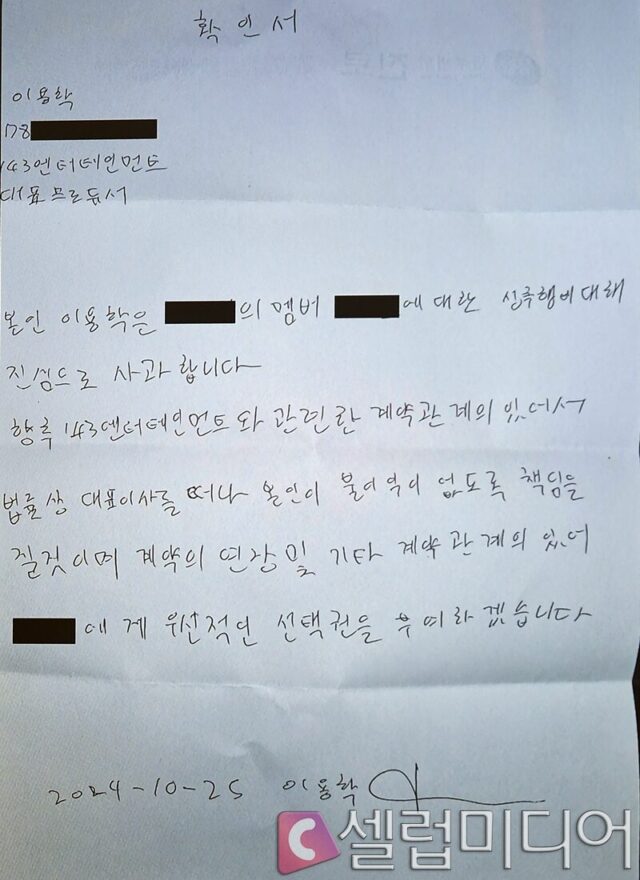 확인서
이용학
178
143엔터테인먼트
대표프로듀서
본인 이용학은 의 멤버 에 대한 성추행에대해
진심으로 사과합니다
향후 143엔터테인먼트와 관련한 계약관계의 있어서
법률상 대표이사를 떠나 본인이 불이익이 없도록 책임을
질것이며 계약의 연장 및 기타 계약관계의 있어
에게 우선적인 선택권을 부여하겠습니다
2024-10-25 이용학
셀럽미디어